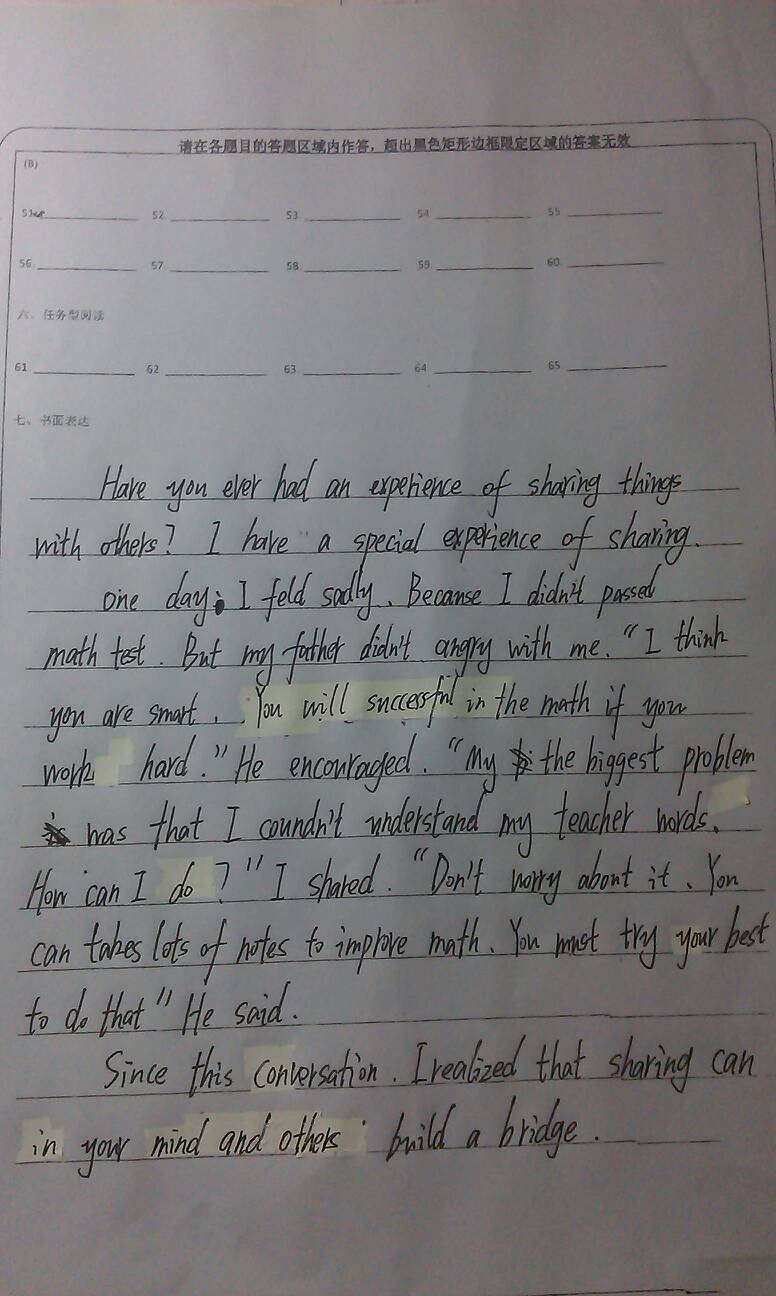 请在各题目的答题区域内作答，超出黑色矩形边框限定区域的答案无效
(B)
51 52 53 54 55
56 57 58 59 60
六、任务型阅读
61 62 63 64 65
七、书面表达
Have you ever had an experience of sharing things
with others? I have a special experience of sharing.
One day, I feld sadly. Because I didn't passed
math test. But my father didn't angry with me. "I think
you are smart. You will successful in the math if you
work hard." He encouraged. "My the biggest problem
was that I coundn't understand my teacher words.
How can I do?" I shared. "Don't worry about it. You
can takes lots of notes to improve math. You must try your best
to do that" He said.
Since this conversation. I realized that sharing can
in your mind and others build a bridge.